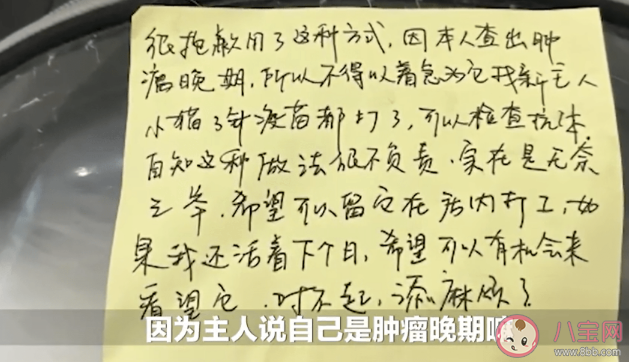 很抱歉用了这种方式,因本人查出肿
瘤晚期,所以不得以着急为它找新主人
小猫3针疫苗都打了,可以检查抗体,
自知这种做法很不负责,实在是无奈
之举,希望可以留它在店内打工,如
果我还活着下个月,希望可以有机会来
看望它,对不起,添麻烦了
因为主人说自己是肿瘤晚期嘛
八宝网
www.8bb.com